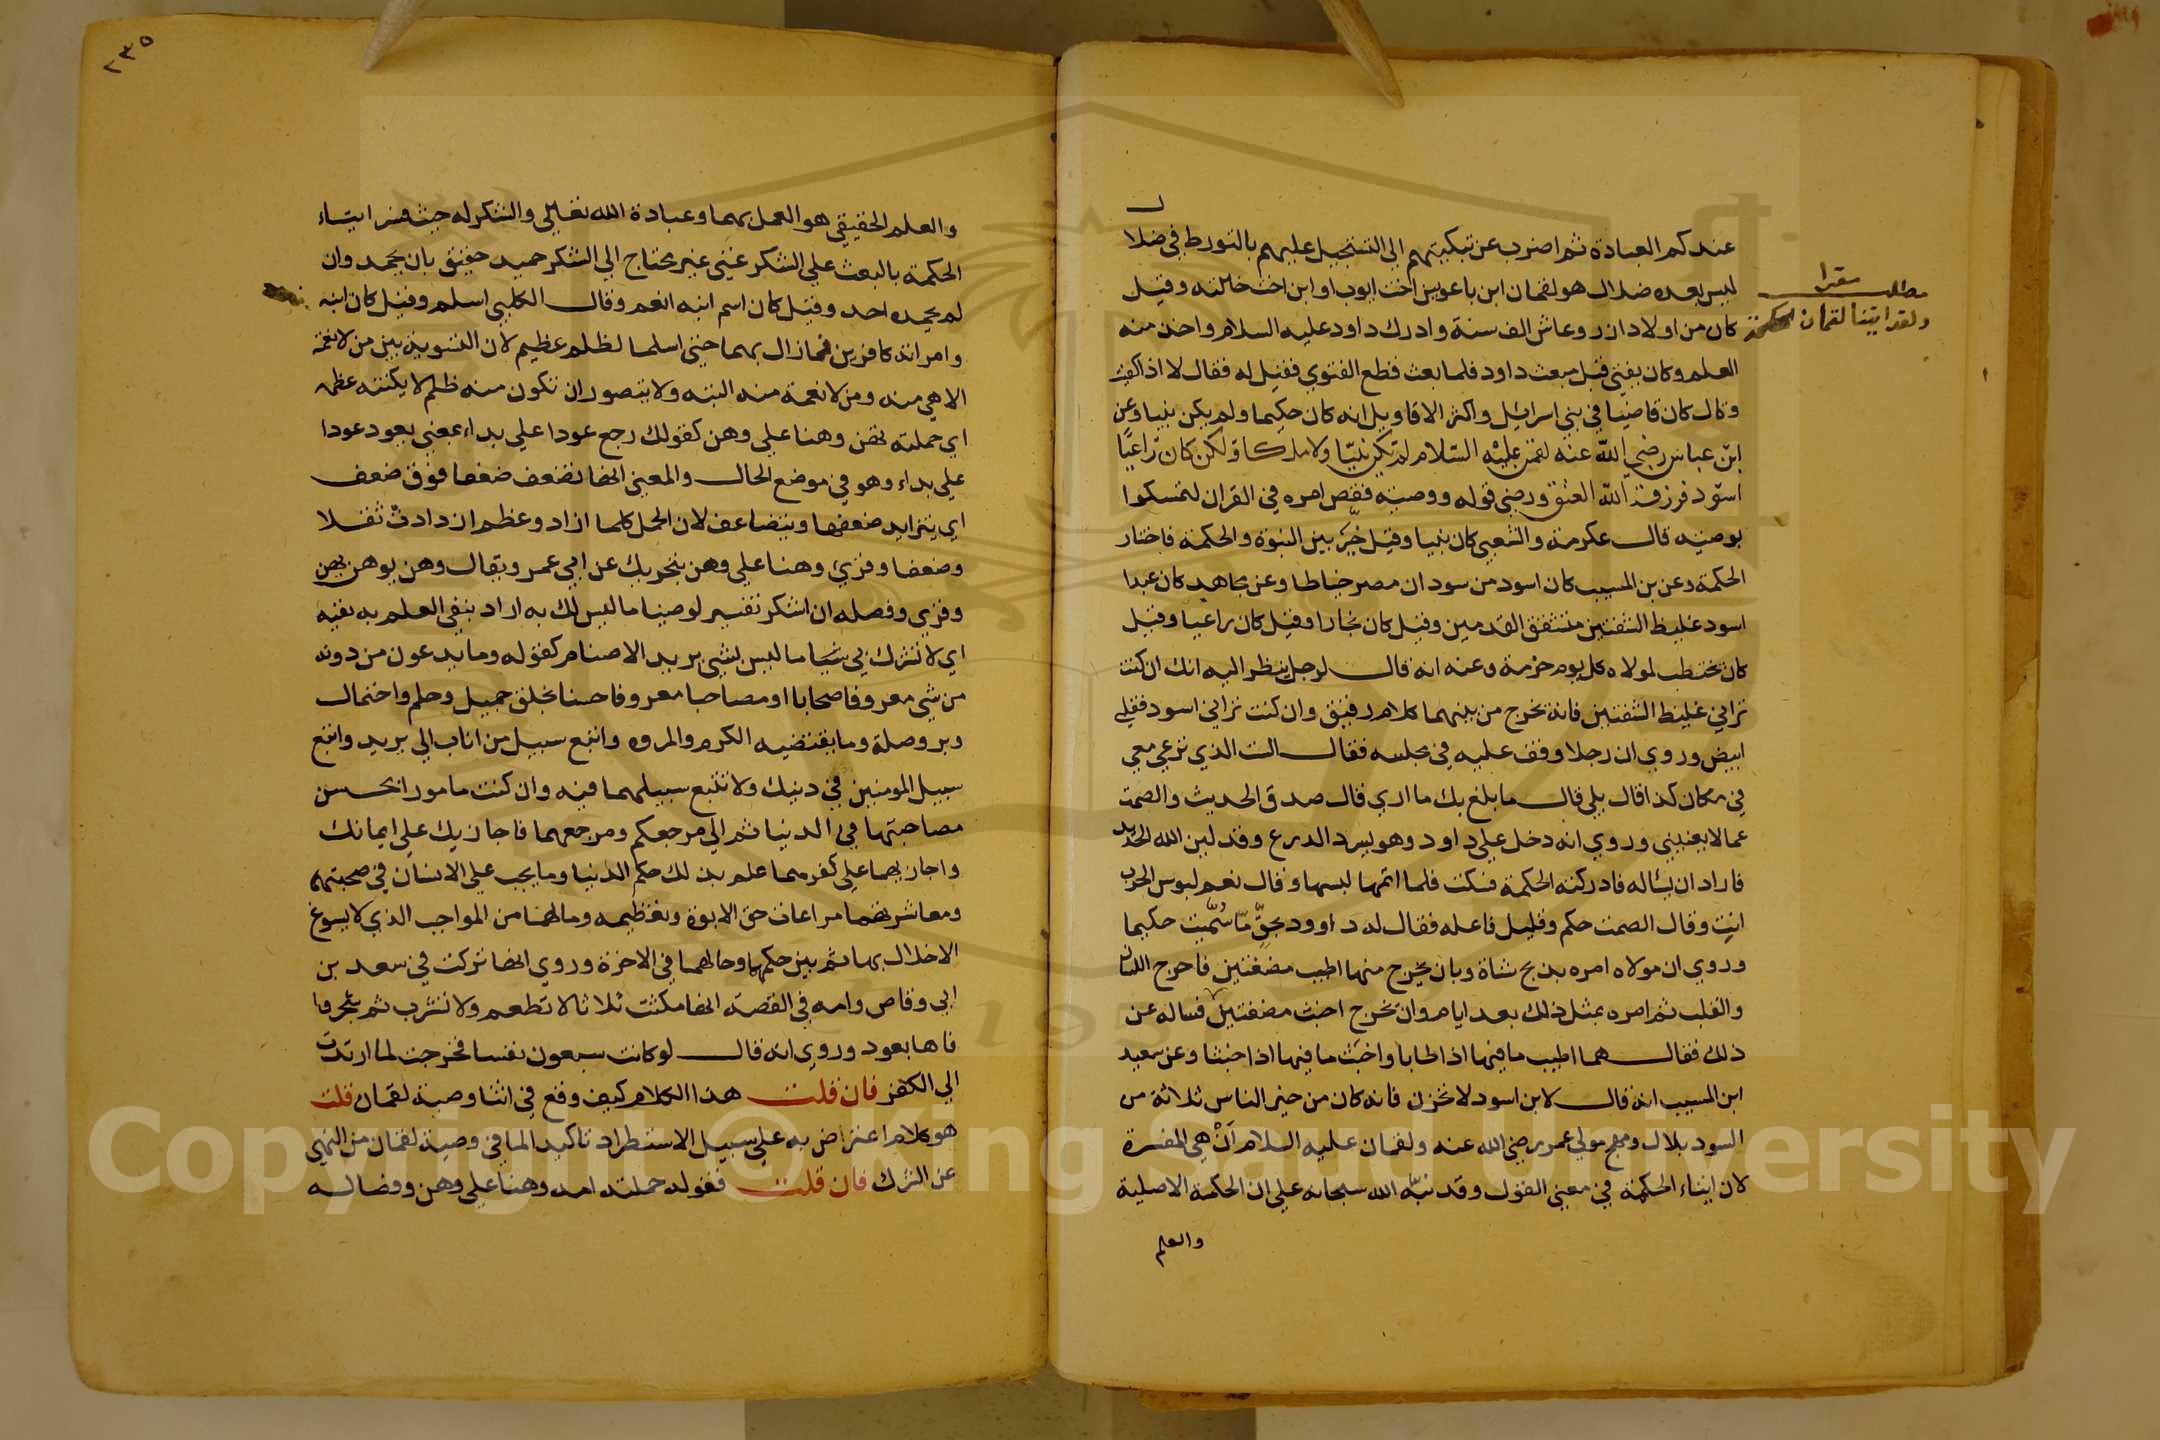 عندكم العبادة ثم اضرب عن تبكيتهم الي التسجيل عليهم بالتورط في ضلا
ل
ليس بعده ضلال هو لقمان ابن باعويز اخت ايوب او ابن اخت خالته وقيل
كان من اولاد ازر وعاش الف سنة وادرك داود عليه السلام واخذ منه
العلم وكان يفتي قبل مبعث داود فلما بعث قطع الفتوي فقيل له فقال لا اذا كفيت
وقال كان قاضيا في بني اسرائيل واكثر الاقاويل انه كان حكيما ولم يكن بنيا وعن
ابن عباس رضي الله عنه لقمن عليه السلام لم يكن نبيا ولا ملكا ولكن كان راعيا
اسود فرزقه الله العتق ورضي قوله ووصيته فقص امره في القران لتمسكوا
بوصيته قال عكرمة والشعبي كان بنيا وقيل خير بين النبوة والحكمة فاختار
الحكمة وعن بن المسيب كان اسود من سودان مصر خياطا وعن مجاهد كان عبدا
اسود غليظ الشفتين متشقق القدمين وقيل كان نجارا وقيل كان راعيا وقيل
كان يحتطب لمولاه كل يوم حزمة وعنه انه قال لرجل ينظر اليه انك ان كنت
تراني غليظ الشفتين فانه يخرج من بينهما كلام رقيق وان كنت تراني اسود فقلبي
ابيض وروي ان رجلا وقف عليه في مجلسه فقال الست الذي ترعي معي
في مكان كذا قال بلي قال ما بلغ بك ما اري قال صدق الحديث والصمت
عما لا يعنيني وروي انه دخل علي داود وهو يسرد الدرع وقد لين الله الحديد
فاراد ان يساله فادركته الحكمة فسكت فلما اتمها لبسها وقال نعم لبوس الحرب
انت وقال الصمت حكم وقليل فاعله فقال له داوود بحق ما سميت حكيما
وروي ان مولاه امره بذبح شاة وبان يخرج منها اطيب مضغتين فاخرج اللسان
والقلب ثم امره بمثل ذلك بعد ايام وان يخرج اخبث مضغتين فساله عن
ذلك فقال هما اطيب ما فيها اذا طابا واخبث ما فيها اذا خبثا وعن سعيد
ابن المسيب انه قال لابن اسود لا تحزن فانه كان من خير الناس ثلاثة من
السود بلال ومهجع مولي عمر رضي الله عنه ولقمان عليه السلام ان هي المفسرة
لان ايتاء الحكمة في معني القول وقد نبه الله سبحانه علي ان الحكمة الاصلية
والعلم
مطلب
ولقد اتينا لقمان الحكمة
٢٣٥
والعلم الحقيقي هو العمل بهما وعبادة الله تعالي والشكر له حيث فسر ايتاء
الحكمة بالبعث علي الشكر غني غير محتاج الي الشكر حميد حقيق بان يحمد وان
لم يحمده احد وقيل كان اسم ابنه انعم وقال الكلبي اسلم وقيل كان ابنه
وامراته كافرين فما زال بهما حتي اسلما لظلم عظيم لان التسوية بين من لا نعمة
الا هي منه ومن لا نعمة منه البته ولا يتصور ان تكون منه ظلم لا يكتنه عظمه
اي حملته تهن وهنا علي وهن كقولك رجع عودا علي بداء بمعني يعود عودا
علي بداء وهو في موضع الحال والمعني انها تضعف ضعفا فوق ضعف
اي يتزايد ضعفها ويتضاعف لان الحمل كلما ازاد وعظم ازدادت ثقلا
وضعفا وقرئ وهنا علي وهن بتحريك عن ابي عمر ويقال وهن يوهن يهن
وقري وفصله ان اشكر تفسير لوصينا ما ليس لك به اراد بنفي العلم به نفيه
اي لا تشرك بي شيا ما ليس بشي يريد الاصنام كقوله وما يدعون من دونه
من شي معروفا صحابا او مصاحبا معروفا حسنا بخلق جميل وحلم واحتمال
وبر وصلة وما يقتضيه الكرم والمروه واتبع سبيل من اناب الي يريد واتبع
سبيل المومنين في دينك ولا تتبع سبيلهما فيه وان كنت مامورا بحسن
مصاحبتها في الدنيا ثم الي مرجعكم ومرجعهما فاجازيك علي ايمانك
واجازيهما علي كفرهما علم بذلك حكم الدنيا وما يجب علي الانسان في صحبتهما
ومعاشرتهما مراعات حق الابوة وتعظيمه وما لهما من المواجب الذي لا يسوغ
الاخلال بها ثم بين حكمهما وحالهما في الاخرة وروي انها نزلت في سعد بن
ابي وقاص وامه في القصة انها مكثت ثلاثا لا تطعم ولا تشرب ثم شجروا
فاها بعود وروي انه قال لو كانت سبعون نفسا فخرجت لما ارتدت
الي الكفر فان قلت هذا الكلام كيف وقع في اثنا وصية لقمان قلت
هو كلام اعتراض به علي سبيل الاستطراد تاكيدا لما في وصية لقمان من النهي
عن الشرك فان قلت فقوله حملته امه وهنا علي وهن وفضاله
Copyright © King Saud University